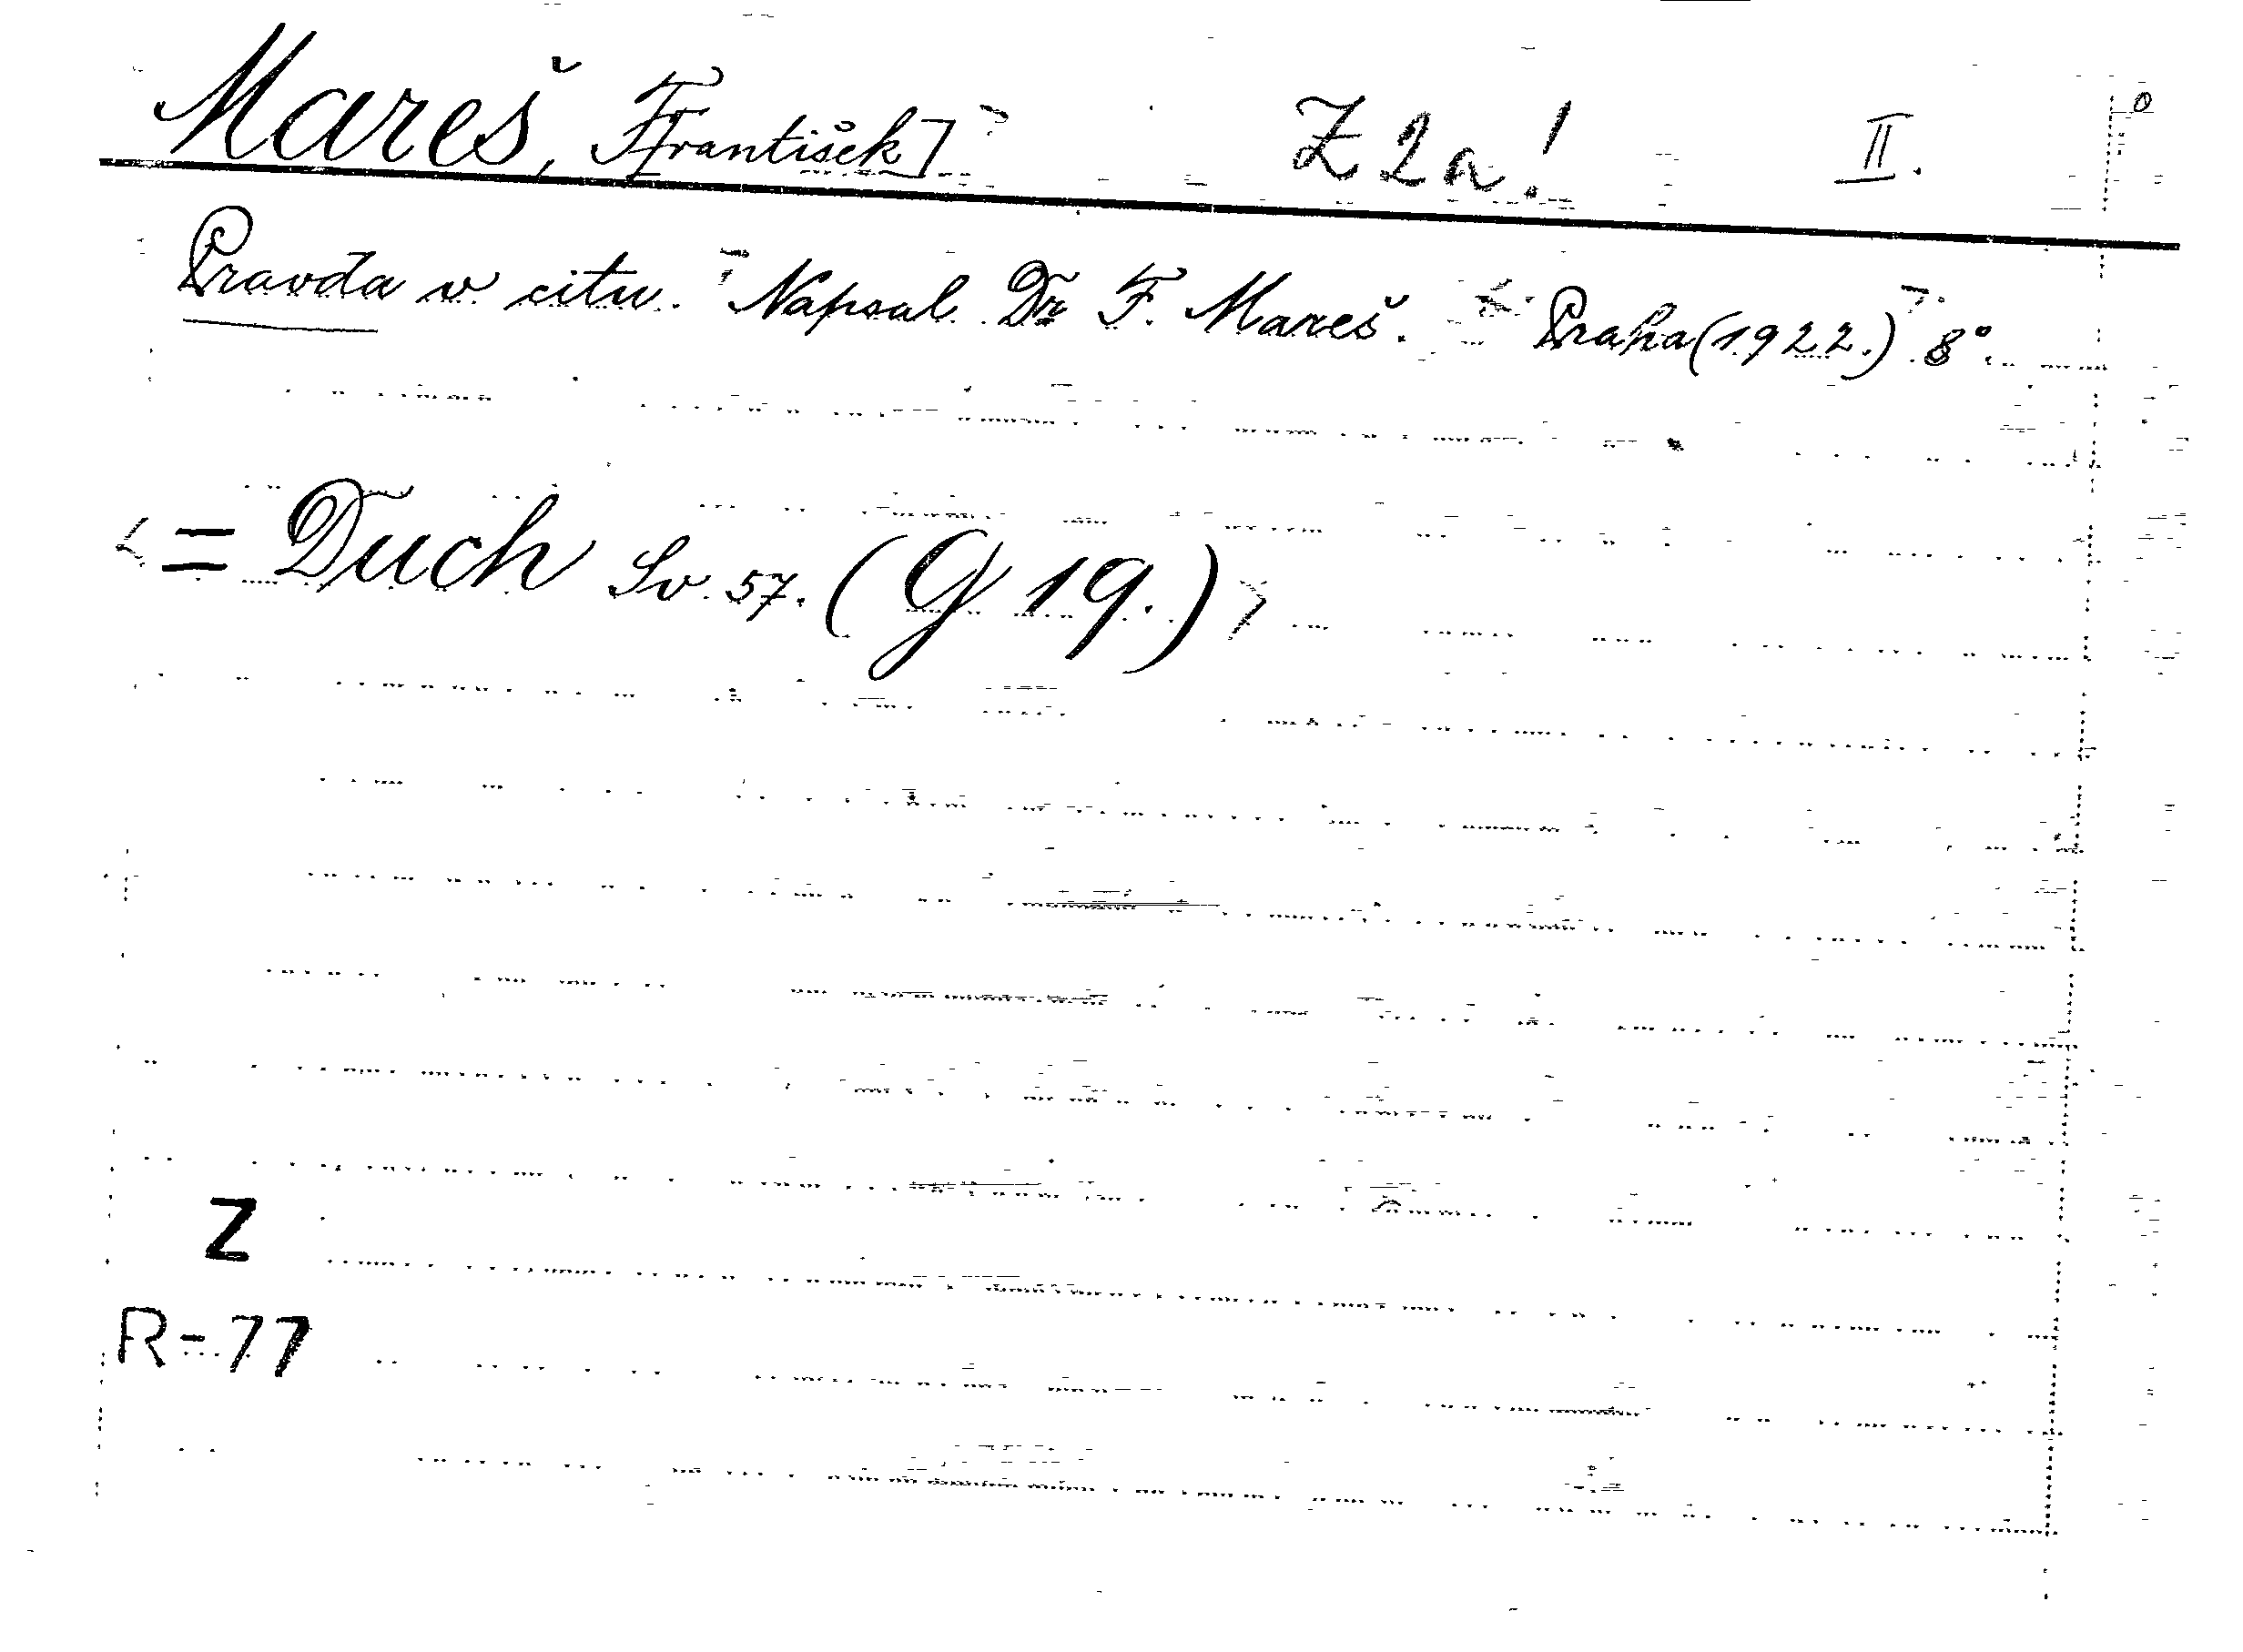 Mareš, F[rantišek] Z 2a! II.
Pravda v citu. Napsal Dr F. Mareš. Praha (1922.) 8°.
<= Duch Sv. 57. (G 19.)>
Z
R-77